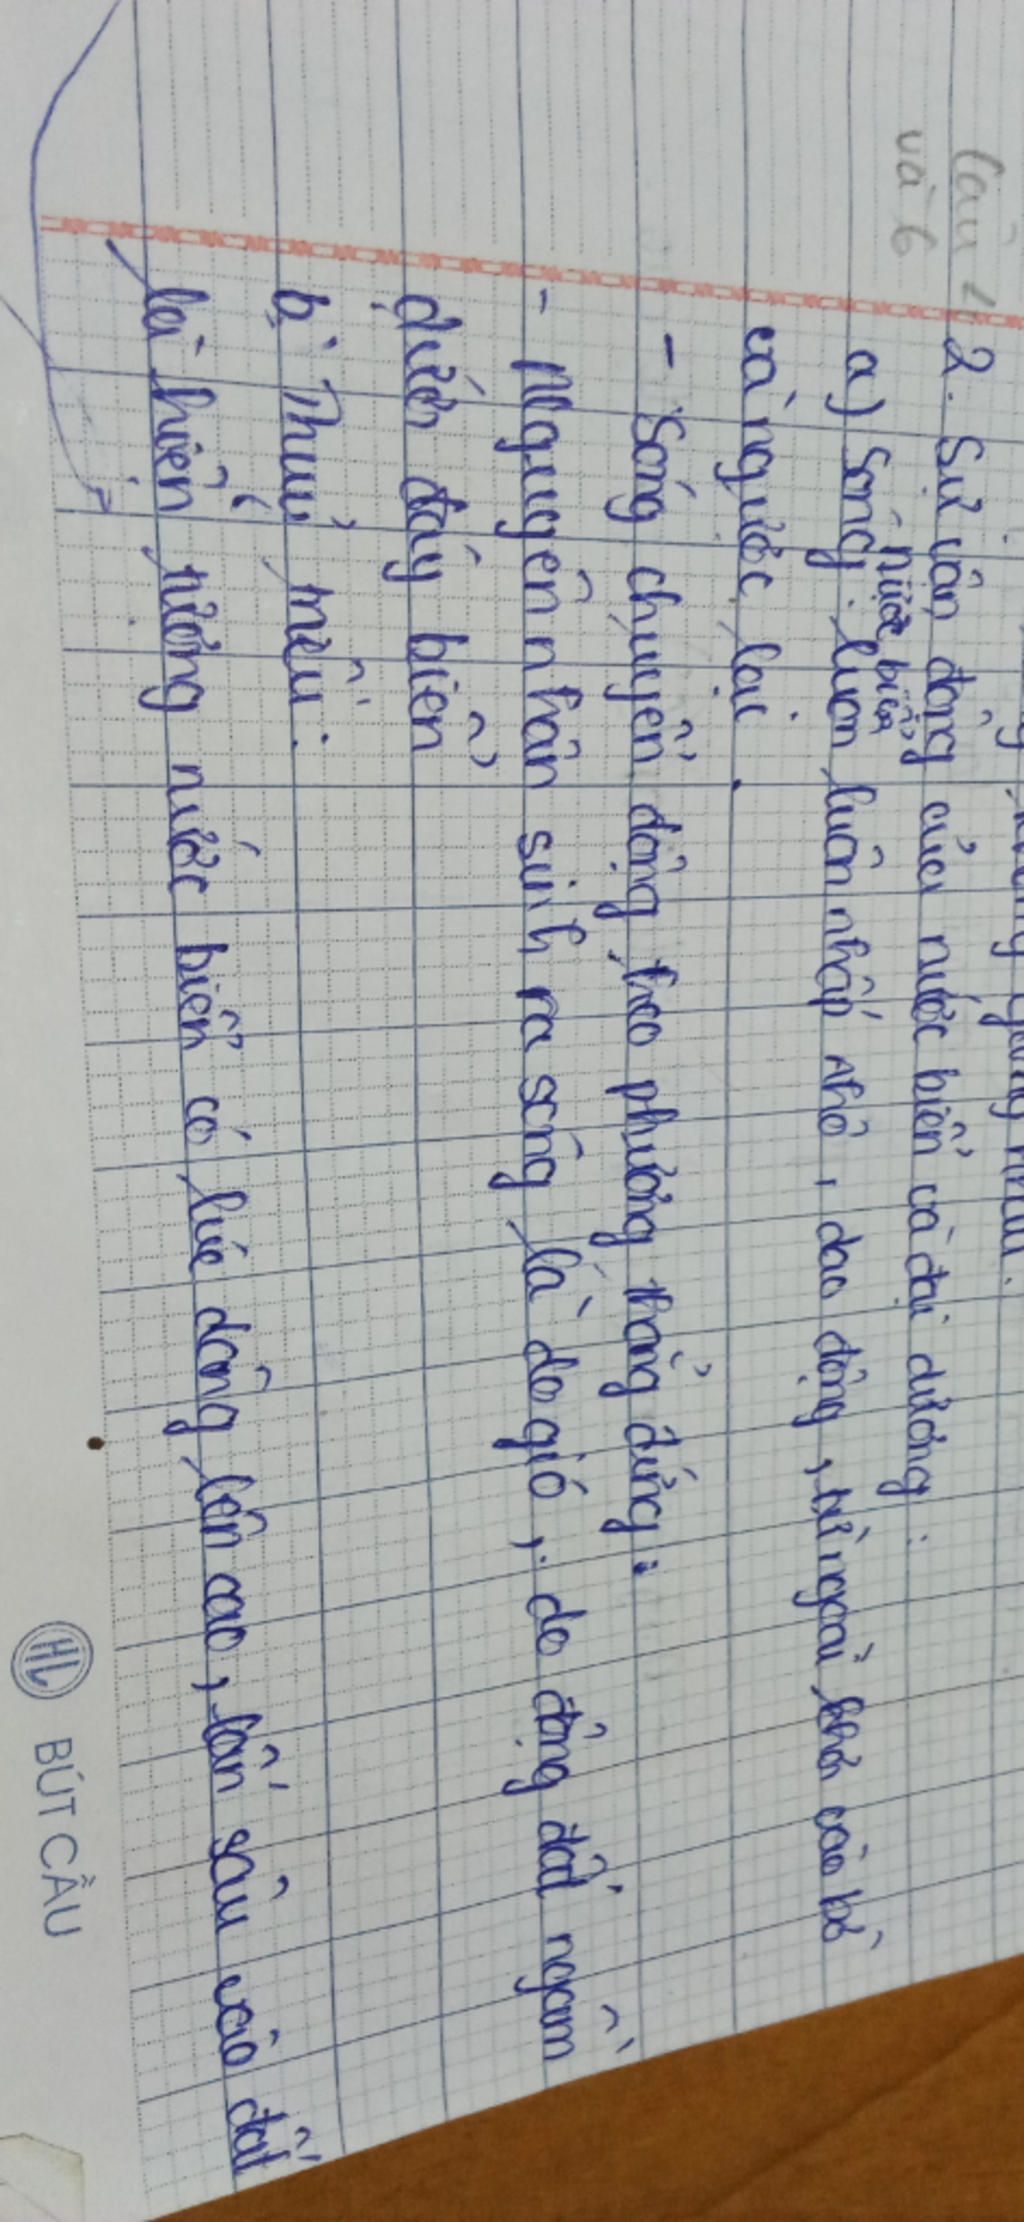 Câu 2
và 6
giống nhau.
2. Sự vận động của nước biển và đại dương:
a) Sóng: nước biển luôn luôn nhấp nhô, dao động, từ ngoài khơi vào bờ
và ngược lại.
- Sóng chuyển động theo phương thẳng đứng.
- Nguyên nhân sinh ra sóng là do gió, do động đất ngầm
dưới đáy biển
b. Thuỷ triều:
là hiện tượng nước biển có lúc dâng lên cao, lấn sâu vào đất
HL BÚT CẦU